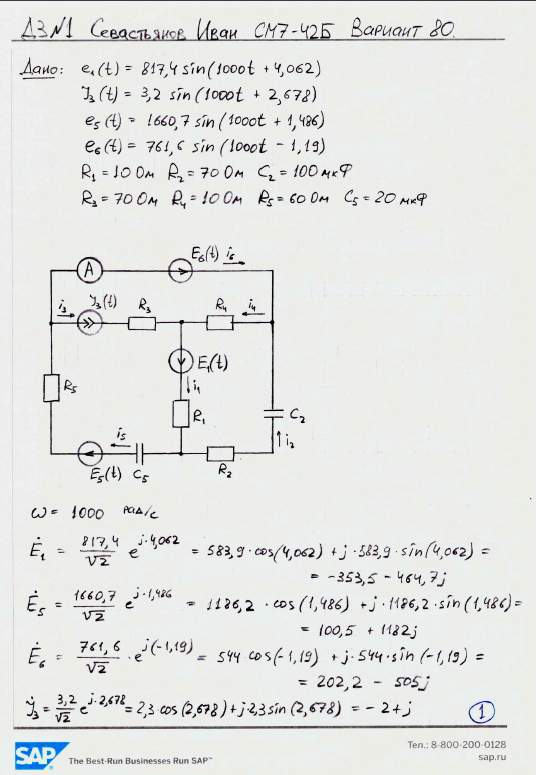 ДЗ №1 Севастьянов Иван СМ7-42Б Вариант 80.
Дано: e₁(t) = 817,4 sin(1000t + 4,062)
J₃(t) = 3,2 sin(1000t + 2,678)
e₅(t) = 1660,7 sin(1000t + 1,486)
e₆(t) = 761,6 sin(1000t - 1,19)
R₁ = 10 Ом R₂ = 70 Ом C₂ = 100 мкФ
R₃ = 70 Ом R₄ = 10 Ом R₅ = 60 Ом C₅ = 20 мкФ
A E₆(t) i₆
i₃ J₃(t) R₃ R₄ i₄
E₁(t)
i₁
R₅ R₁ C₂
i₅ i₂
E₅(t) C₅ R₂
ω = 1000 рад/с
Ė₁ = 817,4/√2 e^(j·4,062) = 583,9·cos(4,062) + j·583,9·sin(4,062) =
= -353,5 - 464,7j
Ė₅ = 1660,7/√2 e^(j·1,486) = 1186,2·cos(1,486) + j·1186,2·sin(1,486) =
= 100,5 + 1182j
Ė₆ = 761,6/√2 · e^(j(-1,19)) = 544 cos(-1,19) + j·544·sin(-1,19) =
= 202,2 - 505j
J̇₃ = 3,2/√2 e^(j·2,678) = 2,3 cos(2,678) + j·2,3 sin(2,678) = -2 + j
1
SAP The Best-Run Businesses Run SAP™
Тел.: 8-800-200-0128
sap.ru